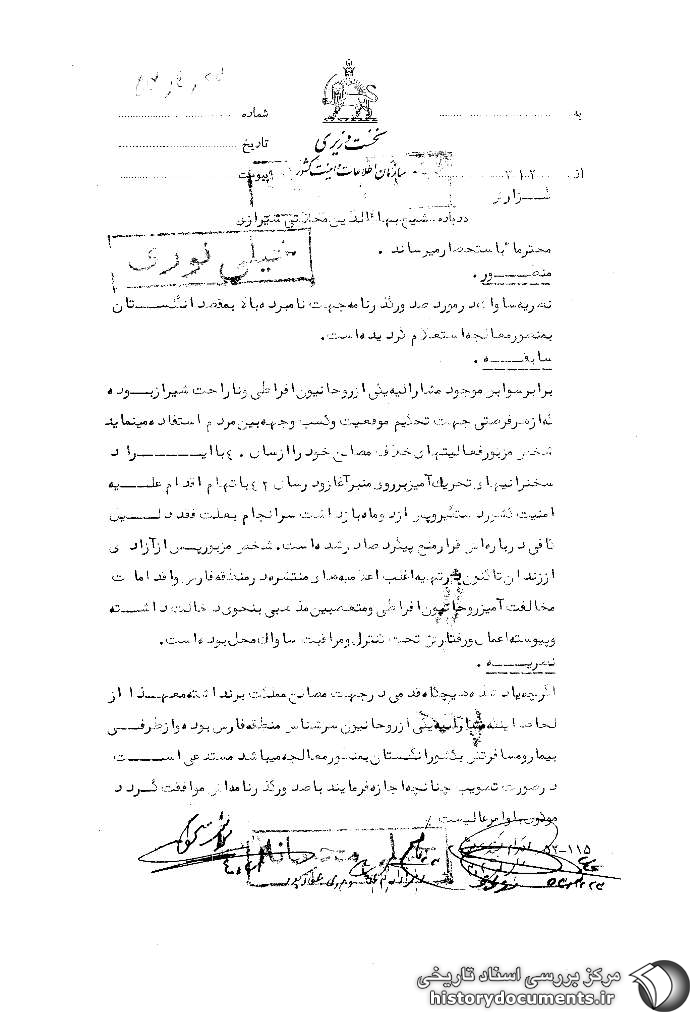 به
شماره
نخست وزیری
تاریخ
سازمان اطلاعات و امنیت کشور
از ۳۱۲
پیوست
گزارش
درباره شیخ بهاءالدین محلاتی شیرازی
خیلی فوری
محترما" باستحضار میرساند .
منظور .
نظریه ساواك در مورد صدور گذرنامه جهت نامبرده بالا بمقصد انگلستان
بمنظور معالجه استعلام گردیده است .
سابقه .
برابر سوابق موجود مشارالیه یکی از روحانیون افراطی و ناراحت شیراز بوده
که از هر فرصتی جهت تحکیم موقعیت و کسب وجهه بین مردم استفاده مینماید
شخص مزبور فعالیتهای خلاف مصالح خود را از سال ۴۰ با ایراد
سخنرانیهای تحریك آمیز بر روی منبر آغاز و در سال ۴۲ باتهام اقدام علیه
امنیت کشور دستگیر و پس از دو ماه بازداشت سرانجام بعلت فقد دلیل
کافی درباره اش قرار منع پیگرد صادر شده است . شخص مزبور پس از آزادی
از زندان تاکنون در تهیه اغلب اعلامیه های منتشره در منطقه فارس و اقدامات
مخالفت آمیز روحانیون افراطی و متعصبین مذهبی بنحوی دخالت داشته
و پیوسته اعمال و رفتارش تحت کنترل و مراقبت ساواك محل بوده است .
نظریه .
اگر چه یاد شده هیچگاه قدمی در جهت مصالح مملکت برنداشته معهذا از
لحاظ اینکه مشارالیه یکی از روحانیون سرشناس منطقه فارس بوده و از طرفی
بیمار و مسافرتش بکشور انگلستان بمنظور معالجه میباشد مستدعی است
در صورت تصویب چنانچه اجازه فرمایند با صدور گذرنامه اش موافقت گردد
موکول باوامر عالیست /
۵۲-۱۱۵
مرکز بررسی اسناد تاریخی
historydocuments.ir